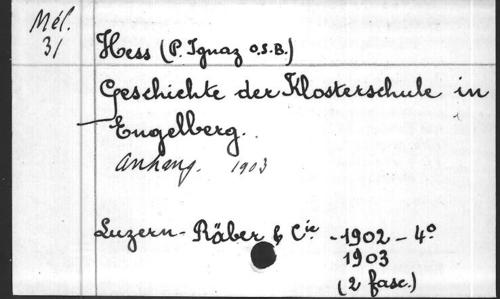 Mél.
31
Hess (P. Ignaz O.S.B.)
Geschichte der Klosterschule in
Engelberg.
Anhang. 1903
Luzern - Räber & Cie - 1902 - 4º
1903
(2 fasc.)